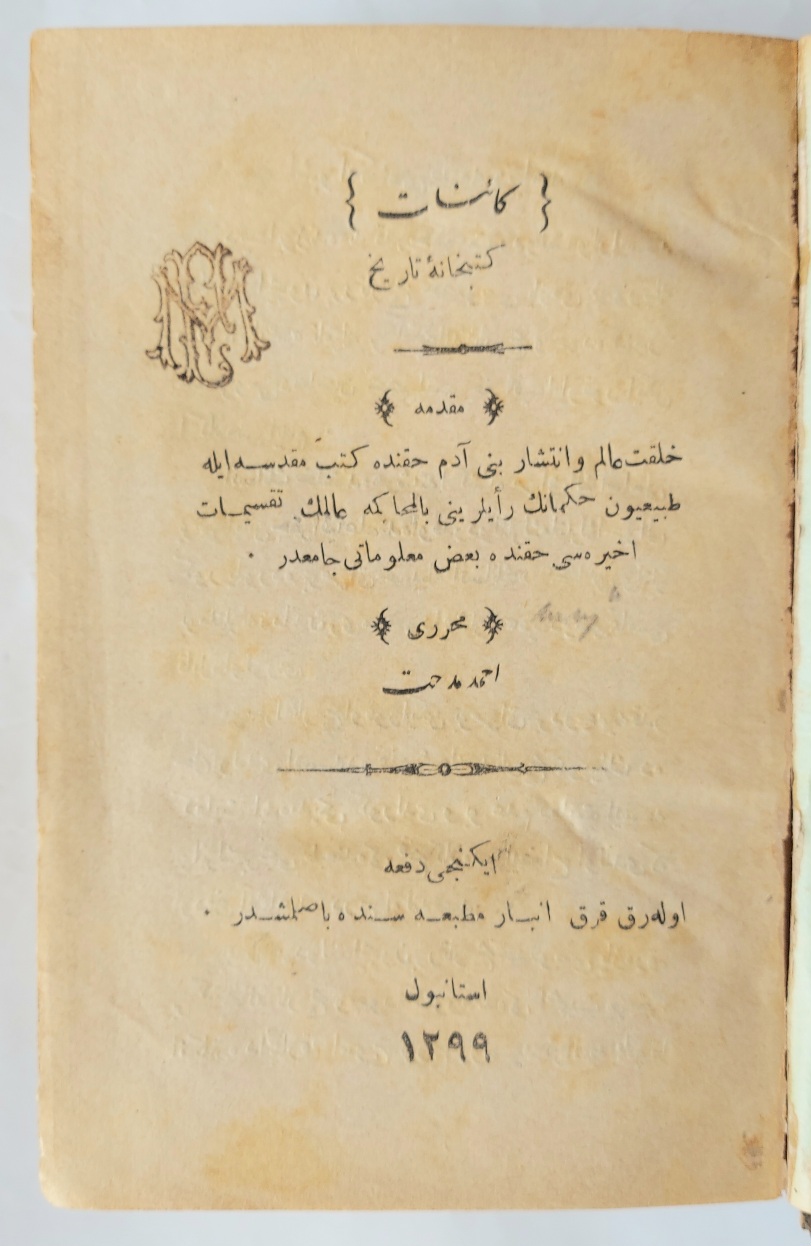 { كائنات }
كتبخانهٔ تاريخ
﴿ مقدمه ﴾
خلقت عالم و انتشار بنى آدم حقنده كتب مقدسه ايله
طبيعيون حكمانك رأيلرينى بالمحاكمه عالمك تقسيمات
اخيره‌سى حقنده بعض معلوماتى جامعدر .
﴿ محررى ﴾
احمد مدحت
ايكنجى دفعه
اوله‌رق قرق انبار مطبعه سنده باصلمشدر .
استانبول
١٢٩٩